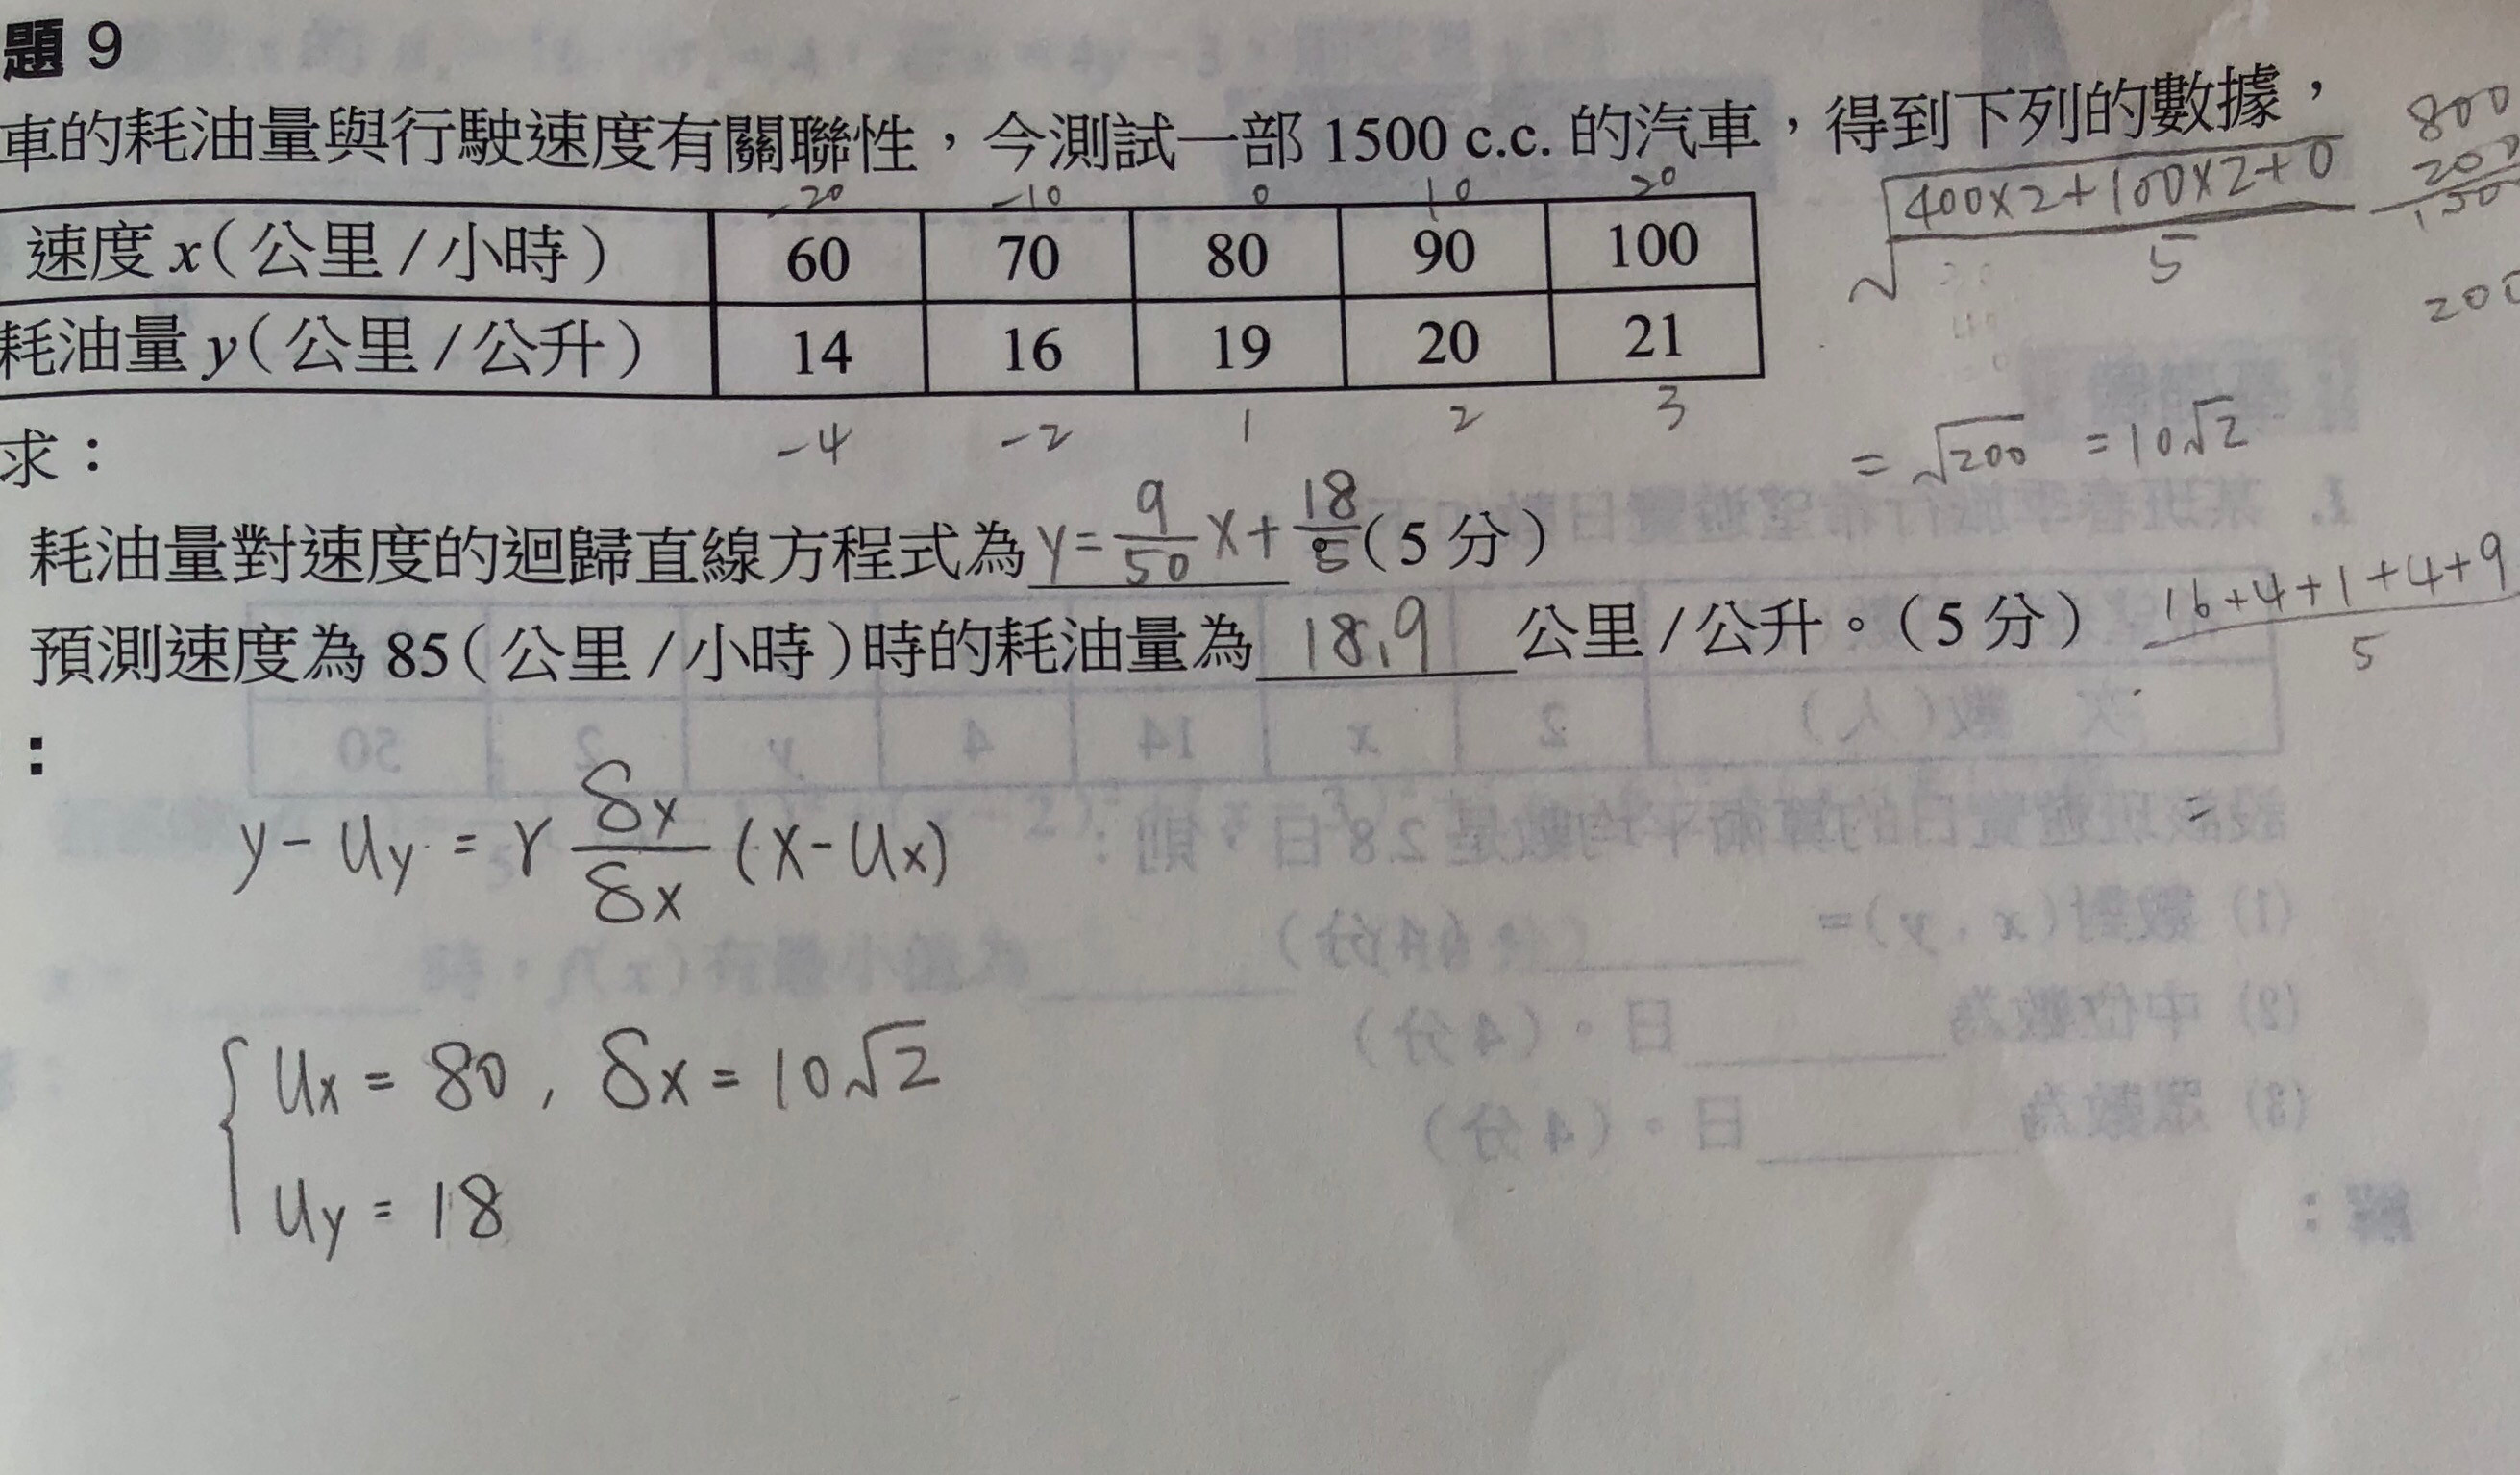 題 9
車的耗油量與行駛速度有關聯性，今測試一部 1500 c.c. 的汽車，得到下列的數據，
800
200
√(400×2+100×2+0 / 5)
200
-20 -10 0 10 20
速度 x(公里/小時) 60 70 80 90 100
耗油量 y(公里/公升) 14 16 19 20 21
-4 -2 1 2 3
= √200 = 10√2
求：
耗油量對速度的迴歸直線方程式為 y = 9/50 x + 18/5 (5 分)
預測速度為 85(公里/小時)時的耗油量為 18.9 公里/公升。(5 分)
16+4+1+4+9 / 5
=
:
y - uy = r δx/δx (x - ux)
ux = 80, δx = 10√2
uy = 18